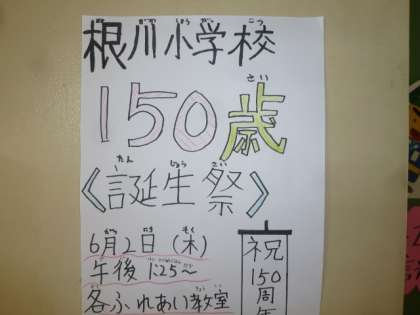 根川小学校
150歳
《誕生祭》
6月2日(木)
午後1:25～
各ふれあい教室
祝150周年